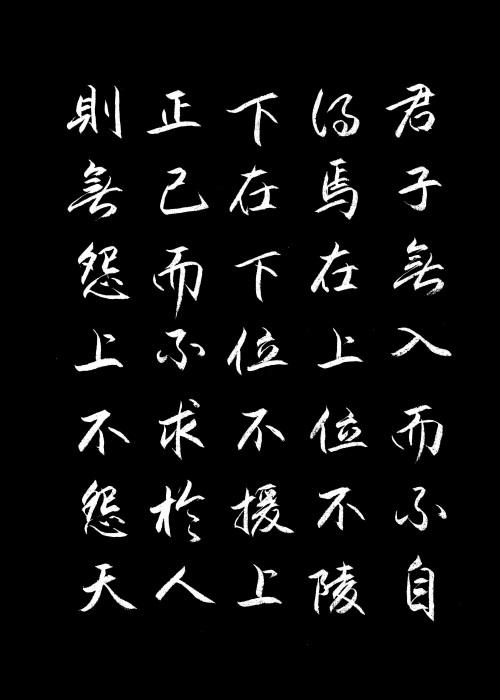 君子無入而不自
得焉在上位不陵
下在下位不援上
正己而不求於人
則無怨上不怨天